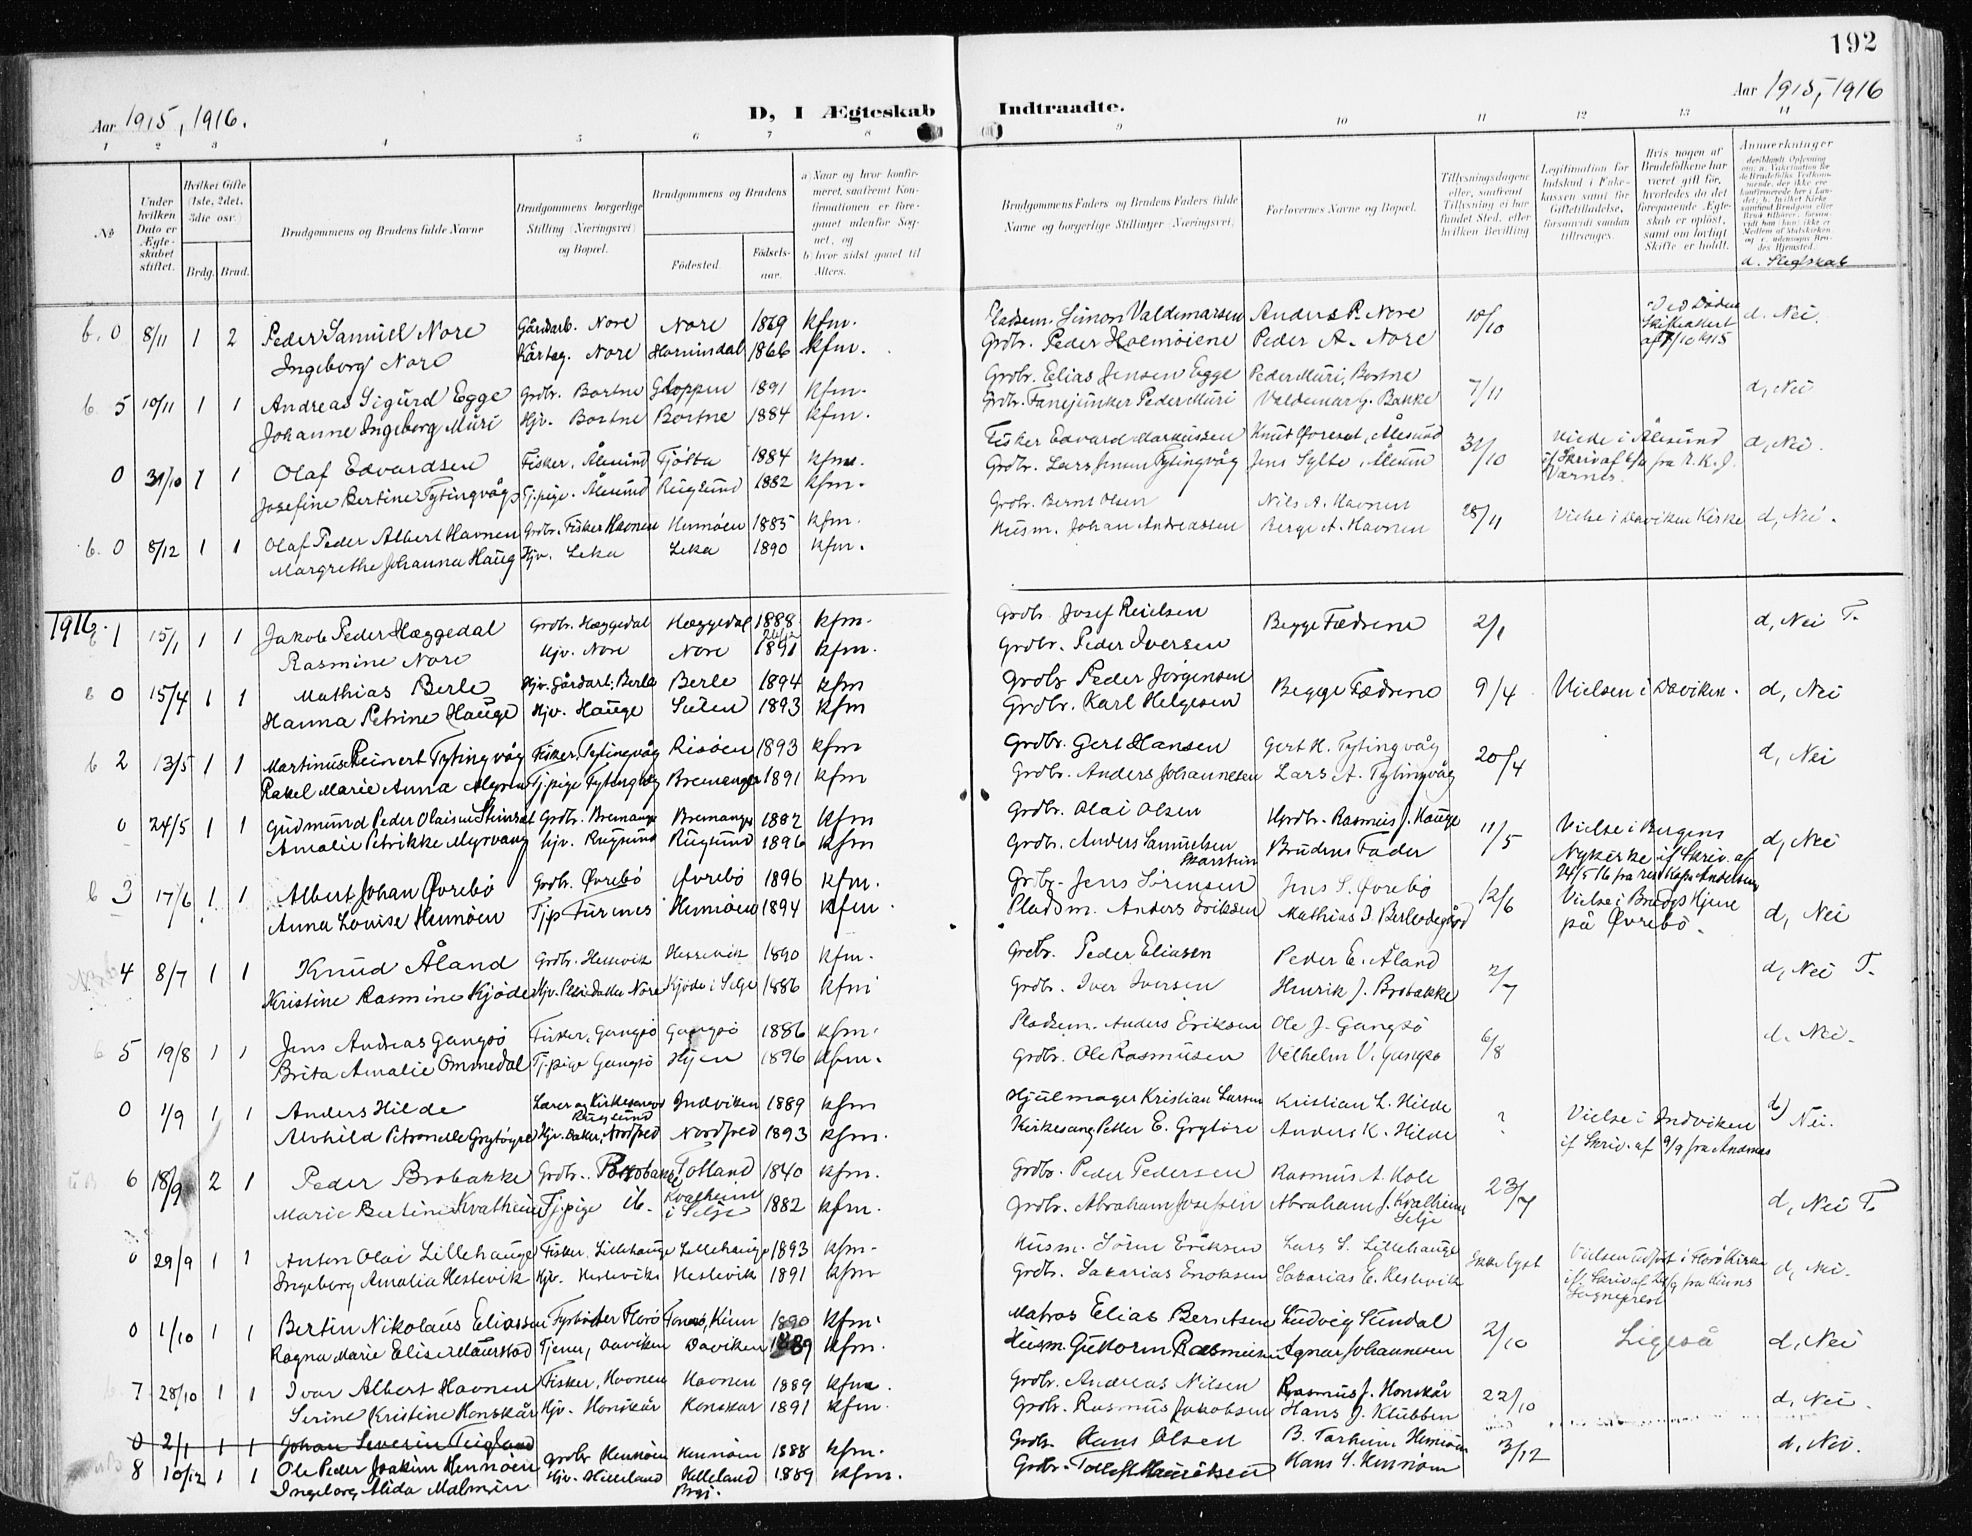 192
Aar 1915, 1916.
D, I Ægteskab Indtraadte.
Aar 1915, 1916
1 2 3 4 5 6 7 8 9 10 11 12 13 14
No
Under hvilken Dato er Ægteskabet stiftet.
Hvilket Gifte (1ste, 2det, 3die osv.)
Brdg. Brud.
Brudgommens og Brudens fulde Navne
Brudgommens borgerlige Stilling (Næringsvei) og Bopæl.
Brudgommens og Brudens
Fødested. Fødselsaar.
a) Naar og hvor konfirmeret, saafremt Konfirmationen er foregaaet udenfor Sognet, og
b) hvor sidst gaaet til Alters.
Brudgommens Faders og Brudens Faders fulde Navne og borgerlige Stillinger (Næringsvei)
Forlovernes Navne og Bopæl.
Tillysningsdagene eller, saafremt Tillysning ei har fundet Sted, efter hvilken Bevilling
Legitimation for Indskud i Enkekassen samt for Giftetilladelse, forsaavidt saadan tiltrænges.
Hvis nogen af Brudefolkene har været gift før, hvorledes da det foregaaende Ægteskab er opløst, samt om lovligt Skifte er holdt.
Anmerkninger
d. Slegtskab
b. 0 8/11 1 2 Peder Samuel Nore Gårdarb. Nore Nore 1869 kfm. Pladsm. Simon Valdemarsen Anders P. Nore 10/10 Ved Døden d. Nei.
Ingeborg Nore Kårtag. Nore Hornindal 1866 kfm. Grdbr. Peder Holmøiene Peder A. Nore Skifteakert
b. 5 10/11 1 1 Andreas Sigurd Egge Grdbr. Bortne Gloppen 1891 kfm. Grdbr. Elias Jensen Egge Peder Muri, Bortne 7/11 d, Nei
Johanne Ingeborg Muri Hjv. Bortne Bortne 1884 kfm. Grdbr. Fanejunker Peder Muri Valdemar G. Bakke
0 31/10 1 1 Olaf Edvardsen Fisker, Ålesund Tjøtta 1884 kfm. Fisker Edvard Markussen Knut Øvreset, Ålesund 31/10 Vielse i Ålesund d, Nei.
Josefine Bertine Tytingvåg Tj.pige. Ålesund Rugsund 1882 kfm. Grdbr. Lars Jensen Tytingvåg Jens Sylte, Ålesund
b. 0 8/12 1 1 Olaf Peder Albert Havnen Grdbr. Fisker Havnen Hennøen 1885 kfm. Grdbr. Bernt Olsen Nils A. Havnen 28/11 Vielse i Daviken Kirke d, Nei.
Margrethe Johanna Haug Hjv. Leka Leka 1890 kfm. Husm. Johan Andreassen Berge A. Havnen
1916.
b 1 15/1 1 1 Jakob Peder Hæggedal Grdbr. Hæggedal Hæggedal 1888 kfm. Grdbr. Josef Reielsen Begge Fædrene 2/1 d, Nei T.
Rasmine Nore Hjv. Nore Nore 1891 kfm. Grdbr. Peder Iversen
b 0 15/4 1 1 Mathias Berle Hjv. Gårdarb. Berle Berle 1894 kfm Grdbr Peder Jørgensen Begge Fædrene 9/4 Vielsen i Daviken. d, Nei
Hanna Petrine Hauge Hjv. Hauge 1893 kfm Grdbr. Karl Helgesen
b 2 13/5 1 1 Martinus Reinert Tytingvåg Fisker, Tytingvåg Risøen 1893 kfm Grdbr. Gert Hansen Gert H. Tytingvåg 20/4 d, Nei
Rakel Marie Anna Tj.pige Tytingvåg Bremanger 1891 kfm Grdbr. Anders Johannesen Lars A. Tytingvåg
0 24/5 1 1 Gudmund Peder Olaisen Steinset Grdbr. Bremanger Bremanger 1882 kfm Grdbr. Olai Olsen Grdbr. Rasmus J. Hauge 11/5 Vielse i Bergens d, Nei
Amalie Petrikke Myrvang Hjv. Rugsund Rugsund 1896 kfm Grdbr. Anders Samuelsen Skarstein Brudens Fader Nykirke if Skriv. af
b 3 17/6 1 1 Albert Johan Øvrebø Grdbr. Øvrebø Øvrebø 1896 kfm. Grdbr. Jens Sørensen Jens S. Øvrebø 12/6 Vielse i Brudgs Hjem d, Nei
Anna Lovise Hennøen Tjp Furenes Hennøen 1894 kfm. Pladsm. Anders Eriksen Mathias D. Berleodegård på Øvrebø.
4 8/7 1 1 Knud Åland Grdbr. Hessevik Hessevik 1890 kfm. Grdbr. Peder Eliasen Peder E. Åland 2/7 d, Nei T.
Kristine Rasmine Kjøde Nore Kjøde i Selje 1886 kfm Grdbr. Iver Iversen Henrik J. Brobakke
5 19/8 1 1 Jens Andreas Gangsø Fisker, Gangsø Gangsø 1886 kfm. Pladsm. Anders Eriksen Ole J. Gangsø 6/8 d. Nei.
Brita Amalie Ommedal Tj.pige Gangsø Hyen 1896 kfm. Grdbr. Ole Rasmusen Vilhelm V. Gangsø
0 1/9 1 1 Anders Hilde Lærer og Kirkesanger Rugsund Indviken 1889 kfm Hjulmager Kristian Larsen Kristian L. Hilde ? Vielse i Indviken d, Nei.
Alvhild Petronelle Grytøyra Nordfred 1893 kfm. Kirkesang Petter E. Grytøre Anders K. Hilde if Skriv. af 9/9 fra
6 18/9 2 1 Peder Brobakke Grdbr. Brobakke Totland 1840 kfm. Grdbr. Peder Pedersen Rasmus A. Hole 23/7 d, Nei T.
Marie Bertine Kvalheim Tj.pige ib. Kvalheim i Selje 1882 kfm. Grdbr. Abraham Josefsen Abraham J. Kvalheim Selje
0 29/9 1 1 Anton Olai Lillehauge Fisker, Lillehauge Lillehauge 1893 kfm. Husm. Sørine Eriksen Lars S. Lillehauge Ikke lyst Vielsen udført i Florø Kirke d, Nei.
Ingeborg Amalia Hestevik Hjv. Hestevik Hestevik 1891 kfm Grdbr. Sakarias Enoksen Sakarias E. Hestevik Sogneprest
0 1/10 1 1 Bertin Nikolaus Eliassen Fyrbøter Florø Kinn 1890 kfm. Matros Elias Berntsen Ludvig Sundal 2/10 Ligeså d, Nei
Ragna Marie Elise Maurstad Tjener, Daviken Daviken 1889 kfm. Husm. Guttorm Rasmusen Agnar Johannesen
7 28/10 1 1 Ivar Albert Havnen Fisker, Havnen Havnen 1889 kfm. Grdbr. Andreas Nilsen Rasmus J. Honskår 22/10 d, Nei.
Serine Kristine Honskår Hjv. Honskår Honskår 1891 kfm. Grdbr. Rasmus Jakobsen Hans J. Klubben
0 2/1 1 1 Johan Severin Teigland
8 10/12 1 1 Ole Peder Joakim Hennøen Grdbr Hennøen Hennøen 1888 kfm. Grdbr. Hans Olsen B. Hennøen 3/12 d, Nei.
Ingeborg Alida Malmgin Hjv. Hilleland Helleland 1889 kfm. Grdbr. Hans S. Hennøen